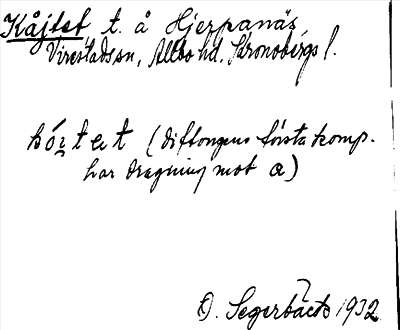 Kåjtet t. å Hjerpanäs,
Virestads sn, Allbo hd, Kronobergs l.
(diftongens första komp.
har dragning mot a)
O. Segerbäck 1932